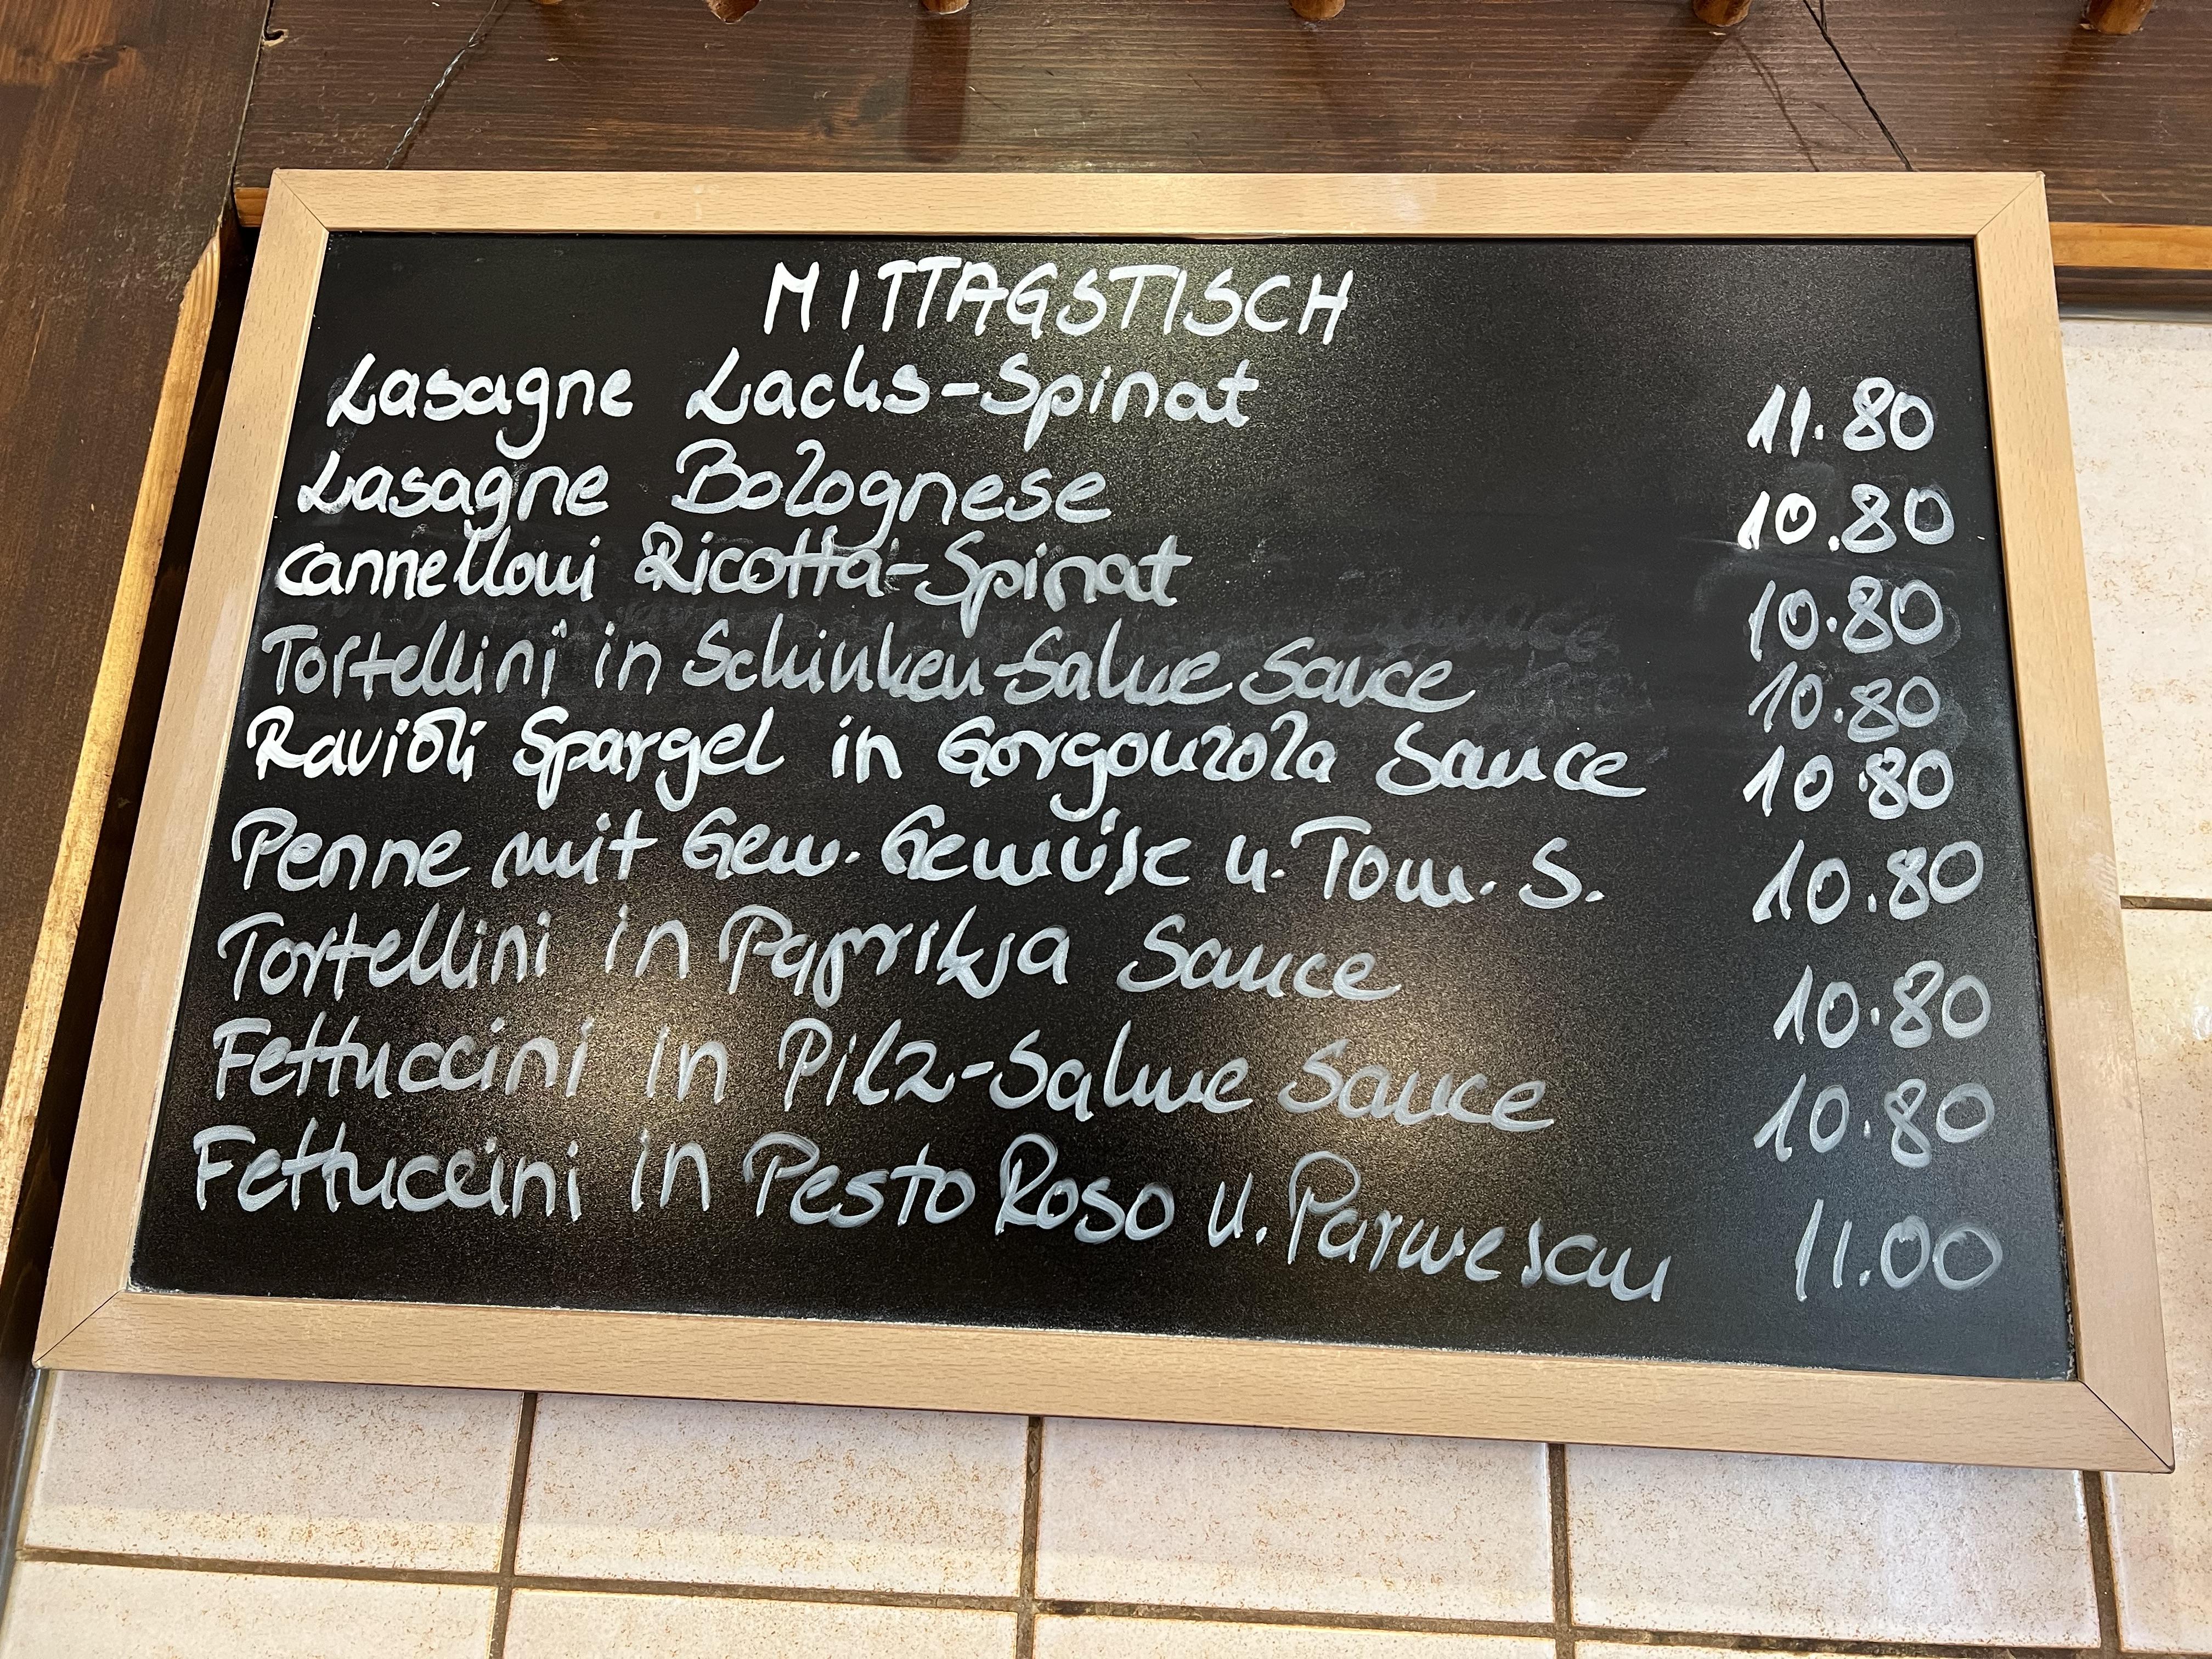 MITTAGSTISCH
Lasagne Lachs-Spinat 11.80
Lasagne Bolognese 10.80
Cannelloni Ricotta-Spinat 10.80
Tortellini in Schinken-Sahne Sauce 10.80
Ravioli Spargel in Gorgonzola Sauce 10.80
Penne mit Gem. Gemüse u. Tom. S. 10.80
Tortellini in Paprika Sauce 10.80
Fettuccini in Pilz-Sahne Sauce 10.80
Fettuccini in Pesto Roso u. Parmesan 11.00